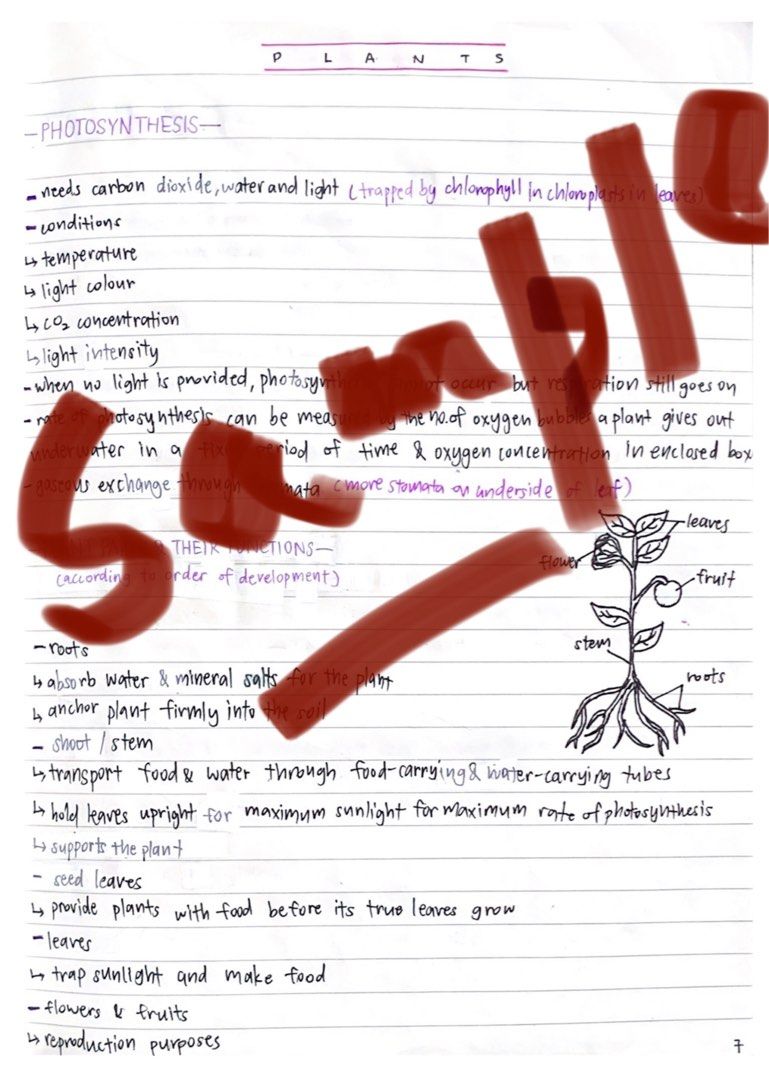 PLANTS
-PHOTOSYNTHESIS-
- needs carbon dioxide, water and light (trapped by chlorophyll in chloroplasts in leaves)
- conditions
↳ temperature
↳ light colour
↳ CO₂ concentration
↳ light intensity
- when no light is provided, photosynthesis cannot occur but respiration still goes on
- rate of photosynthesis can be measured by the no. of oxygen bubbles a plant gives out
underwater in a fixed period of time & oxygen concentration in enclosed box
- gaseous exchange through stomata (more stomata on underside of leaf)
- PLANT THEIR FUNCTIONS-
(according to order of development)
leaves
flower
fruit
stem
roots
- roots
↳ absorb water & mineral salts for the plant
↳ anchor plant firmly into the soil
- shoot / stem
↳ transport food & water through food-carrying & water-carrying tubes
↳ hold leaves upright for maximum sunlight for maximum rate of photosynthesis
↳ supports the plant
- seed leaves
↳ provide plants with food before its true leaves grow
- leaves
↳ trap sunlight and make food
- flowers & fruits
↳ reproduction purposes
7
Sample